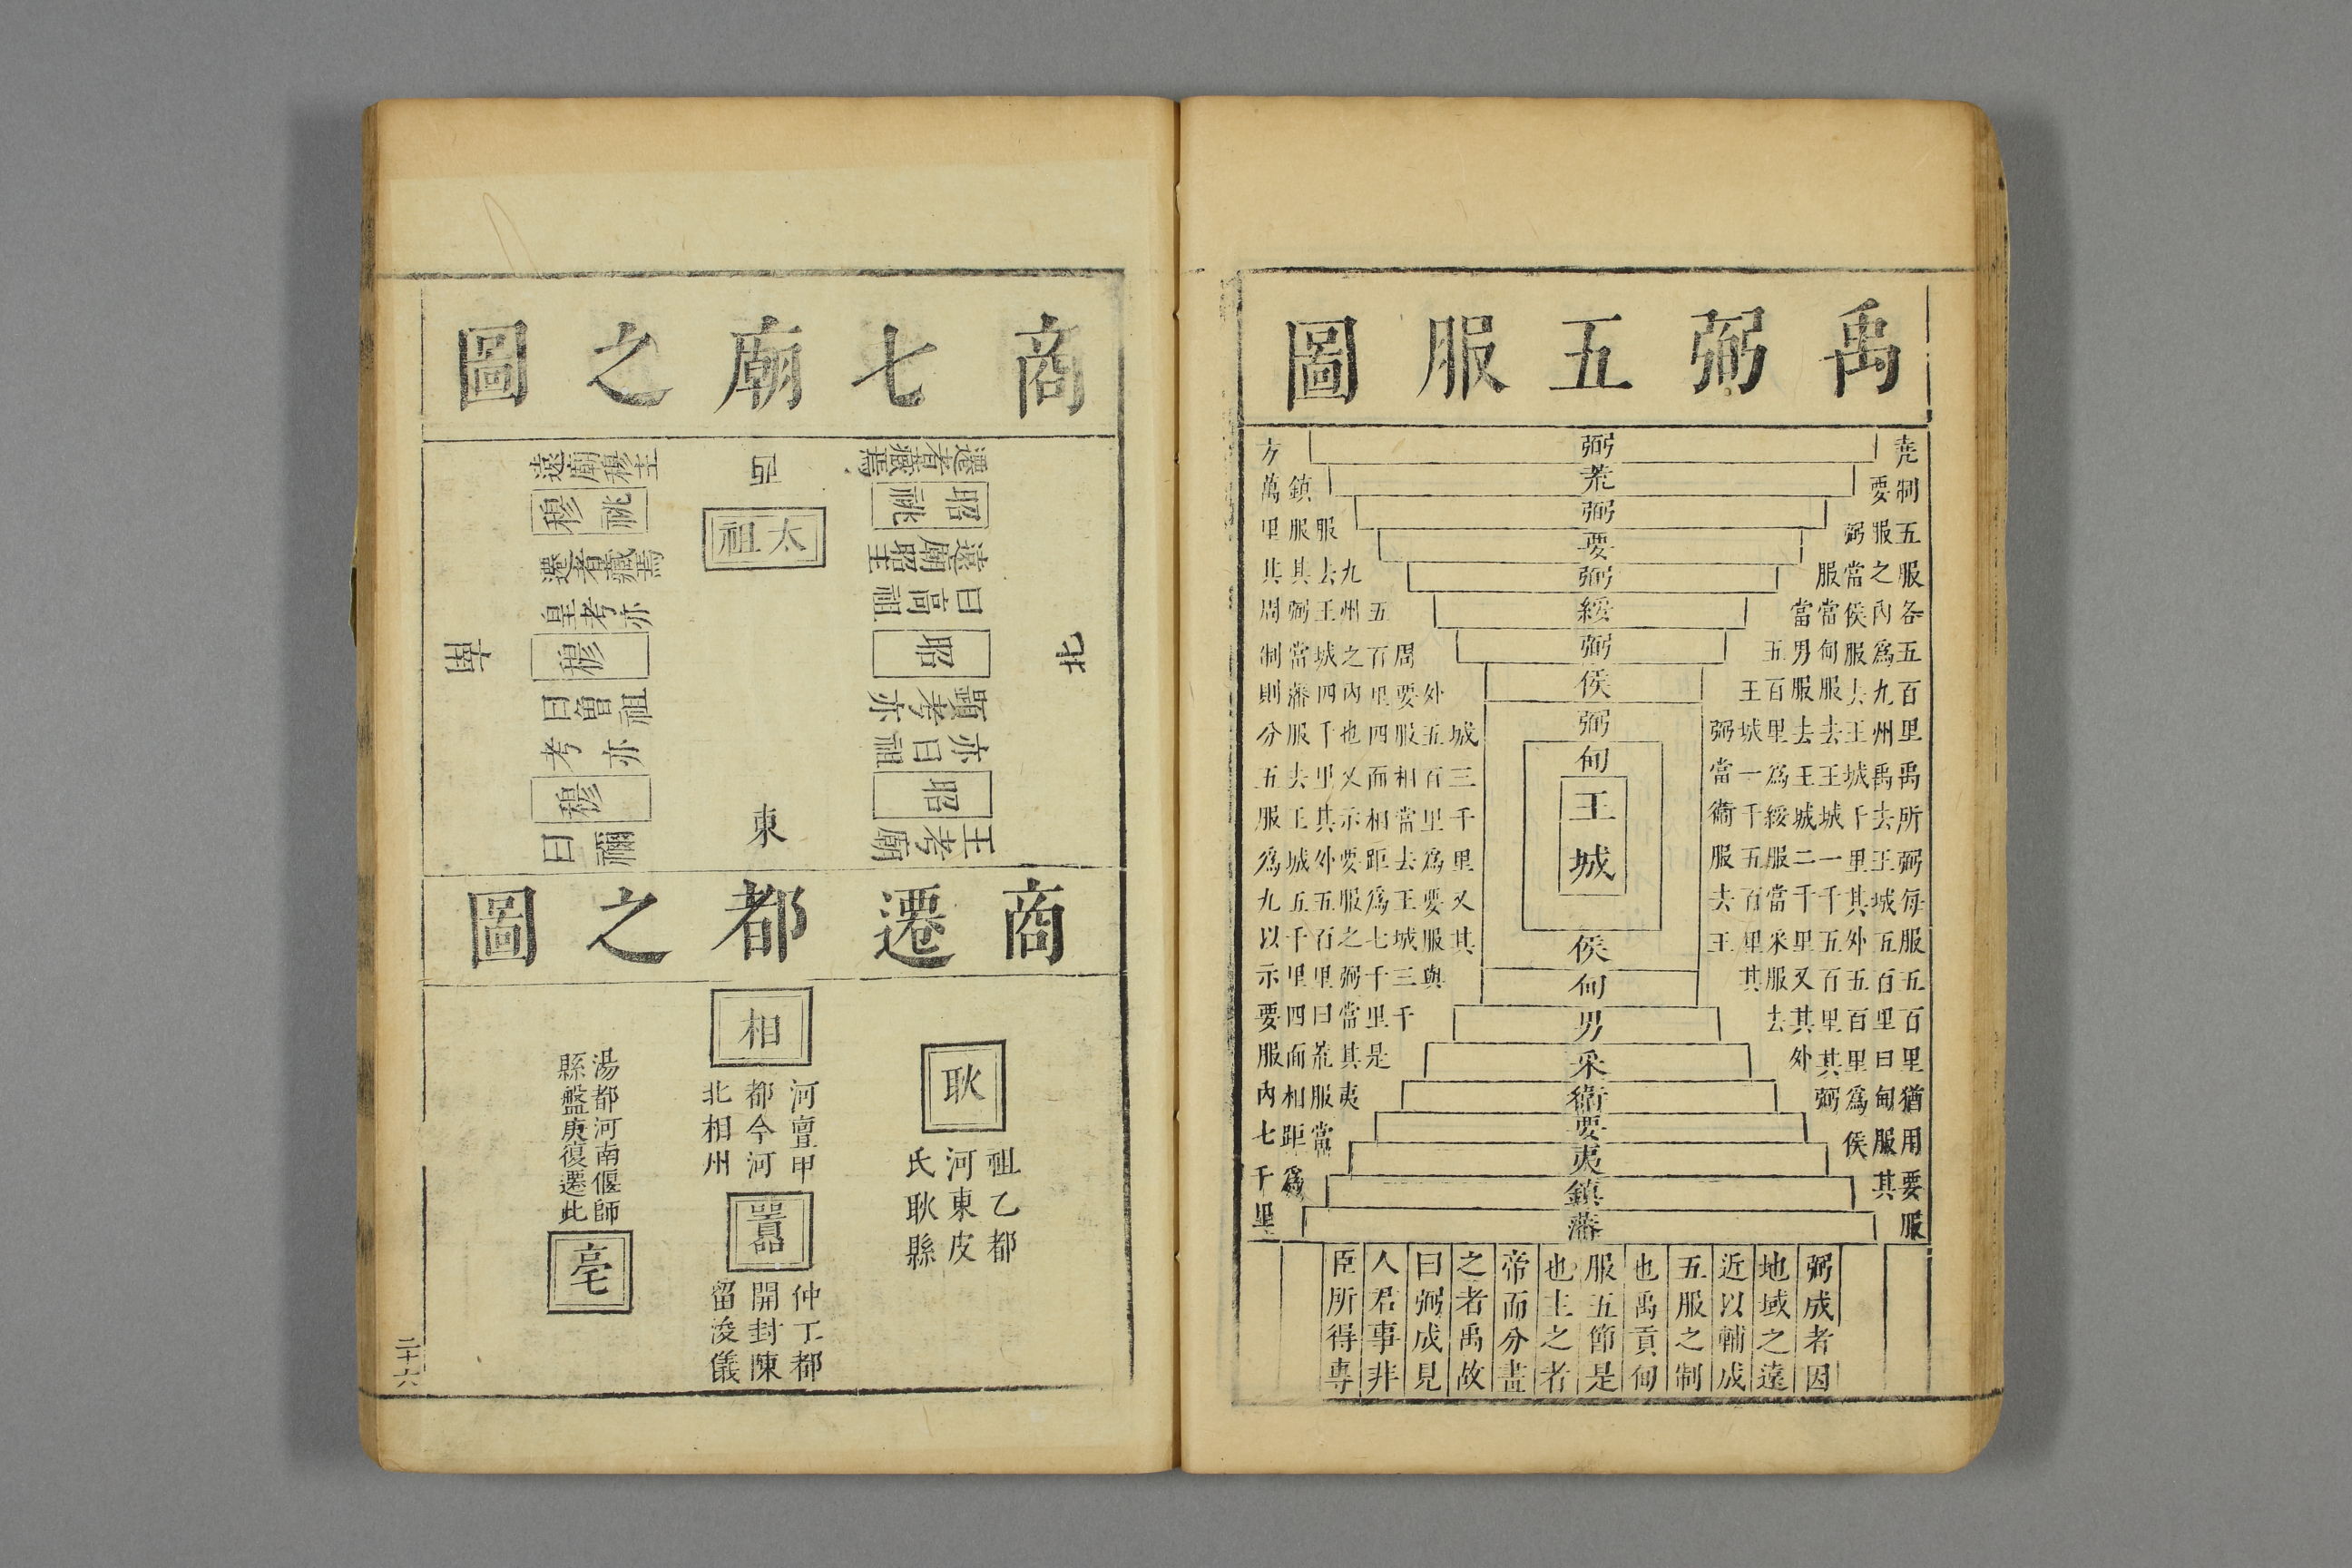 禹弼五服圖
堯制五服各五百里禹所弼每服五百里猶用要服
要服之內爲九州禹去王城五百里曰甸服其
弼當侯服去王城千里其外五百里爲侯
服當甸服去王城一千五百里其弼
當男服去王城二千里又其外
五百里爲綏服當采服去
王城一千五百里其
弼當衛服去王
弼
荒
弼
要
弼
綏
弼
侯
弼
甸
王城
侯
甸
男
采
衛
要
夷
鎮
藩
城三千里又其
外五百里爲要服與
周要服相當去王城三千
五百里四面相距爲七千里是
九州之內也又示要服之弼當其夷
服去王城四千里其外五百里曰荒服當
鎮服其弼當藩服去王城五千里四面相距爲
方萬里其周制則分五服爲九以示要服內七千里
弼成者因
地域之遠
近以輔成
五服之制
也禹貢甸
服五節是
也主之者
帝而分畫
之者禹故
曰弼成見
人君事非
臣所得專
商七廟之圖
北
遠廟昭主
昭祧
遷者藏焉
顯考亦
曰高祖
昭
王考廟
亦曰祖
昭
西
太祖
東
遠廟穆主
穆祧
遷者藏焉
皇考亦
穆
曰曾祖
考亦
穆
曰禰
南
商遷都之圖
耿
祖乙都
河東皮
氏耿縣
相
河亶甲
都今河
北相州
囂
仲丁都
開封陳
留浚儀
湯都河南偃師
縣盤庚復遷此
亳
二十六